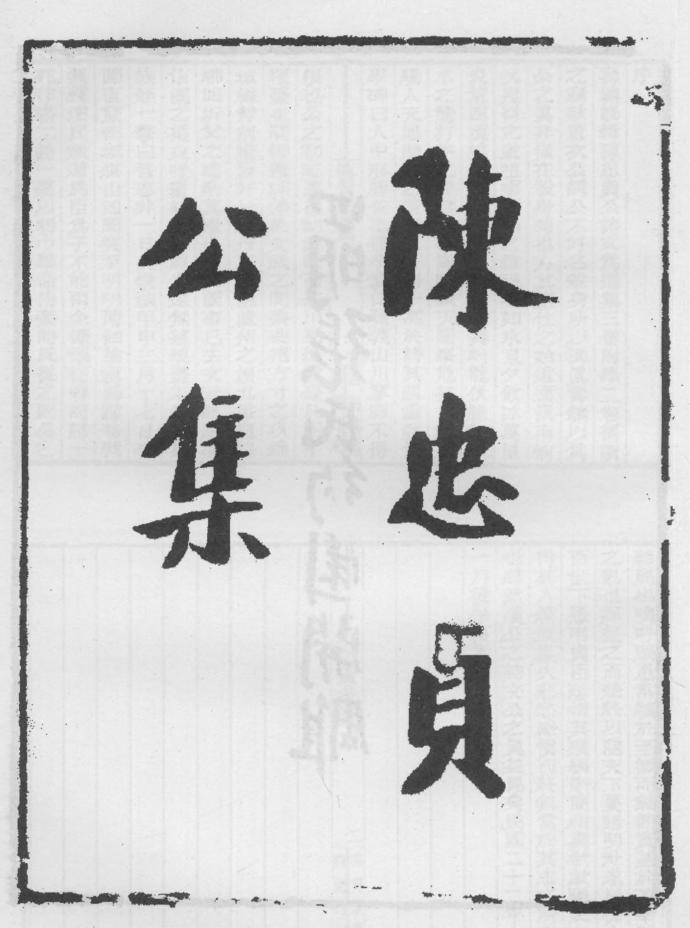 陳忠貞
公集